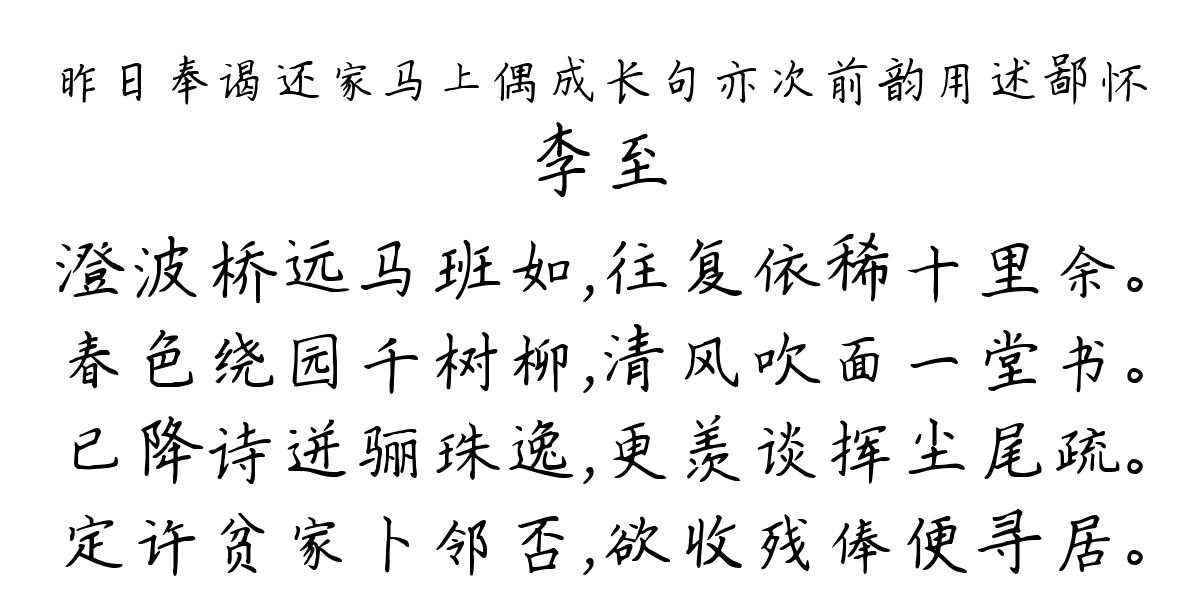 昨日奉谒还家马上偶成长句亦次前韵用述鄙怀
李至
澄波桥远马班如,往复依稀十里余。
春色绕园千树柳,清风吹面一堂书。
已降诗迸骊珠逸,更羡谈挥尘尾疏。
定许贫家卜邻否,欲收残俸便寻居。